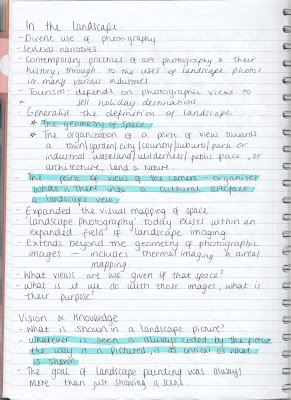 In the landscape
- Diverse use of photography
- Several narratives
- Contemporary practices of art photography & their
history, through to the uses of landscape photos
in many various industries
- Tourism - depends on photographic views to
sell holiday destinations
- Generalise the definition of landscape
* The geometry of space
* The organization of a point of view towards
a town/garden/city/country/suburb/park or
industrial wasteland/wilderness/public space, or
architecture, land & nature
- The point of view of the camera - organises
what is there into a cultural artefact
a landscape view
- Expanded the visual mapping of space
- 'landscape photography' today exists within an
expanded field of 'landscape imaging'
- Extends beyond the geometry of photographic
images — includes thermal imaging & aerial
mapping.
- What views are we given of that space?
- What is it we do with those images, what is
their purpose?
Vision & Knowledge
- What is shown in a landscape picture?
- Whatever is seen is always coded by the picture
the way it is pictured, is as critical as what
is shown
- The goal of landscape painting was always
more than just showing a scene.